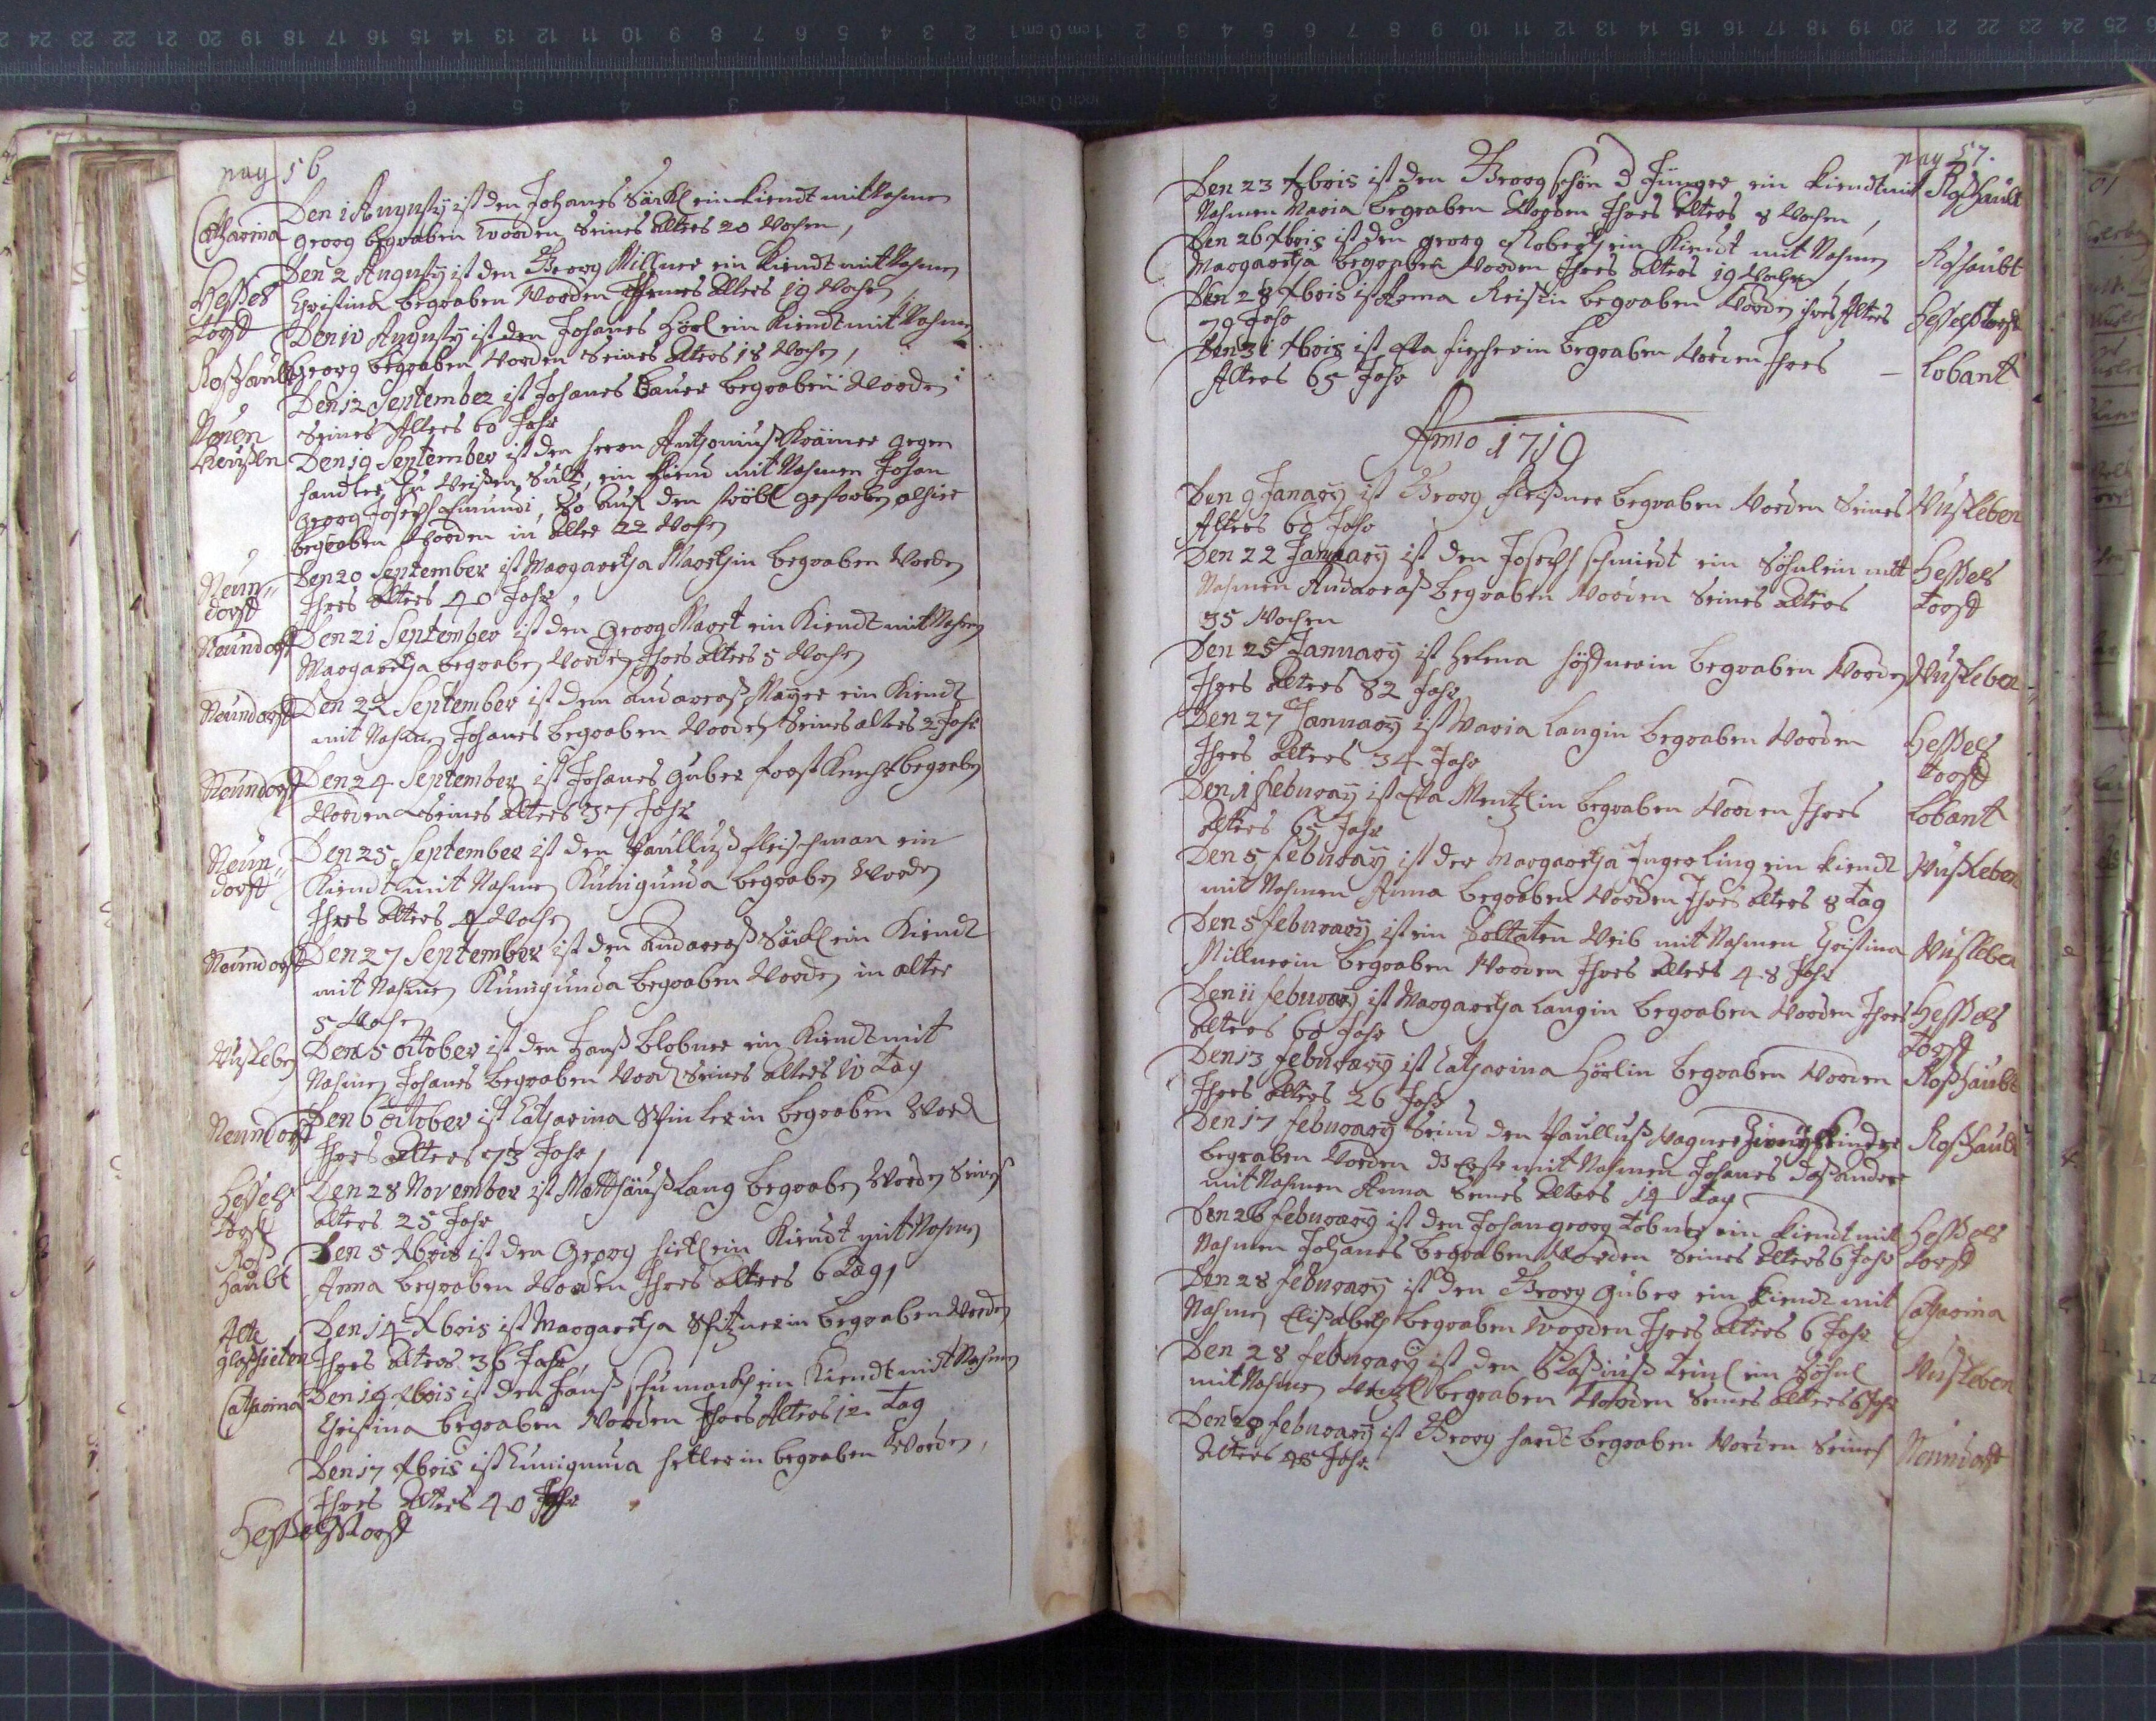 pag 56
Catharina
Den 1 Augusty ist den Johanes Särckl ein kiendt mit Nahmen
Georg begraben worden Seines alters 20 Wochen,
Hessels
dorff
Den 2 Augusty ist den Georg Millner ein kiendt mit Nahmen
Christina begraben Worden Alters 19 Wochen
Roßhaubt
Den 10 Augusty ist den Johanes Hörl ein kiendt mit Nahmen
Georg begraben Worden Seines Alters 18 Wochen,
Neuen
Heußln
Den 12 September ist Johanes Bauer begraben Worden
Seines Alters 60 Jahr
Den 19 September ist den Herrn Anthonius Krämer gegen
handler Zu Weißen Sultz, ein kiend mit Nahmen Johan
Georg Joseph, So auf den gestorben, alhier
begraben Worden in alter 22 Wochen
Neun-
dorff
Den 20 September ist Margaretha Marthin begraben Worden
Ihres alters 40 Jahr
Neundorff
Den 21 September ist den Georg Mart ein Kiendt mit Nahmen
Margaretha begraben Worden Ihres alters 5 Wochen
Neundorff
Den 22 September ist dem andareaß Mayer ein Kiendt
mit Nahmen Johanes begraben Worden Seines alters 2 Jahr
Neundorff
Den 24 September ist Johanes Guber forst Knecht begraben
Worden Seines alters 37 Jahr
Neun-
dorff
Den 25 September ist den Paulluß fleischman ein
Kiendt mit Nahmen Kunigunda begraben Worden
Ihres alters 4 Wochen
Neundorff
Den 27 September ist den Andareaß Särckl ein Kiendt
mit Nahmen Kunigunda begraben Worden in alter
5 Wochen
Wusleben
Den 5 october ist den Hanß Blobner ein Kiendt mit
Nahmen Johanes begraben Word Seines alters 10 Tag
Neundorff
Den 6 october ist Catharina Winkerin begraben Word
Ihres alters 73 Jahr,
Hessels
dorff
Den 28 November ist Matthäuß Lang begraben Worden Seines
alters 25 Jahr
Roß
Haubt
Den 5 Xbris ist den Georg Hickl ein Kiendt mit Nahmen
Anna begraben Worden Ihres alters 6 Tag,
Alte
glaßhieten
Den 14 Xbris ist Margaretha Spitznerin begraben Worden
Ihres alters 36 Jahr,
Catharina
Den 14 Xbris ist den Hanß schumach ein Kiendt mit Nahmen
Christina begraben Worden Ihres Alters 12 Tag
Den 17 Xbris ist Cunigunda Hellerin begraben Worden,
Ihres Alters 40 Jahr
Hesselsdorff
pag 57.
Den 23 Xbris ist den Georg Schön d Jünger ein kiendt mit
Roßhaubt
Nahmen Maria begraben Worden Ihres Alters 8 Wochen,
Den 26 Xbris ist den Georg Kloberth ein Kiendt mit Nahmen
Roßhaubt
Margaretha begraben Worden Ihres alters 19 Wochen
Den 28 Xbris ist Anna Reislin begraben Worden ihres Alters
Hesselsdorff
79 Jahr
Den 31 Xbris ist Efa fischerin begraben Worden Ihres
Lobant
Alters 65 Jahr
Anno 1719
Den 9 Janary ist Georg fleißner begraben Worden Seines
Wusleben
Alters 60 Jahr
Den 22 January ist den Joseph schmidt ein Söhnlein mitt
Hessels
dorff
Nahmen Andareaß begraben Worden Seines alters
35 Wochen
Den 25 January ist Helena Höffnerin begraben Worden
Wusleben
Ihres alters 82 Jahr
Den 27 January ist Maria Langin begraben Worden
Hessels
dorff
Ihres alters 34 Jahr
Den 1 february ist Efa Mentzlin begraben Worden Ihres
Lobant
alters 65 Jahr
Den 5 february ist der Margaretha Ingerling ein kiendt
Wusleben
mit Nahmen Anna begraben Worden Ihres alters 8 tag
Den 5 february ist ein Soltaten Weib mit Nahmen Christina
Wusleben
Millnerin begraben Worden Ihres alters 48 Jahr
Den 11 february ist Margaretha Langin begraben Worden Ihres
Hessels
dorff
alters 60 Jahr
Den 13 february ist Catharina Hörlin begraben Worden
Roßhaubt
Ihres alters 26 Jahr
Den 17 february Seind den Paulluß Wagner Zwey Kinder
Roßhaubt
begraben Worden d Erste mit Nahmen Johanes daß andere
mit Nahmen Anna Seines alters 14 Tag
Den 26 february ist den Johan georg Tobner ein kiendt mit
Hessels
dorff
Nahmen Johanes begraben Worden Seines alters 6 Jahr
Den 28 february ist den Georg Guber ein kiendt mit
Catharina
Nahmen Elisabeth begraben Worden Ihres alters 6 Jahr
Den 28 february ist den Blasiuß ein Söhnl
Wusleben
mit Nahmen Wentzl begraben Worden Seines alters 6 Jahr
Den 28 february ist Georg Hardt begraben Worden Seines
Neundorff
Alters 48 Jahr